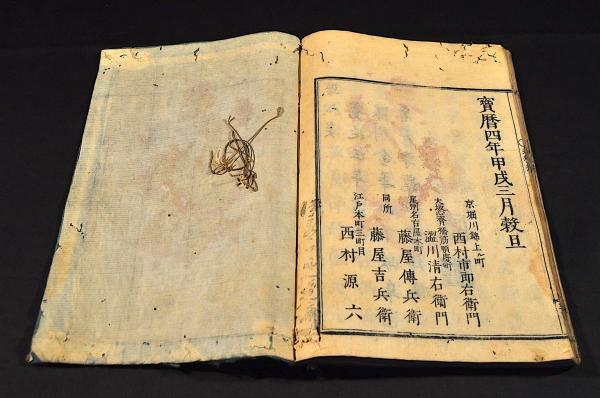 寳曆四年甲戌三月穀旦
京堀川錦上ル町
西村市郎右衛門
大坂心斎橋筋順慶町
澁川清右衛門
尾州名古屋本町
藤屋傳兵衛
同所
藤屋吉兵衛
江戸本町三町目
西村源六